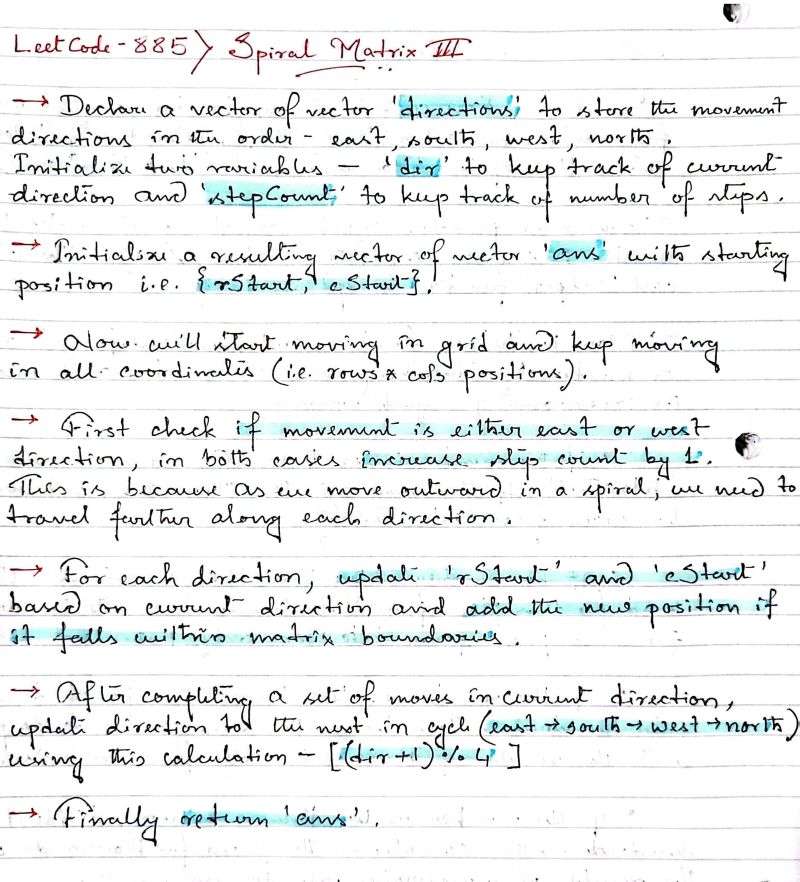 LeetCode-885> Spiral Matrix III
→ Declare a vector of vector 'directions' to store the movement
directions in the order - east, south, west, north.
Initialize two variables – 'dir' to keep track of current
direction and 'stepCount' to keep track of number of steps.
→ Initialize a resulting vector of vector 'ans' with starting
position i.e. {rStart, cStart}.
→ Now will start moving in grid and keep moving
in all coordinates (i.e. rows * cols positions).
→ First check if movement is either east or west
direction, in both cases increase step count by 1.
This is because as we move outward in a spiral, we need to
travel further along each direction.
→ For each direction, update 'rStart' and 'cStart'
based on current direction and add the new position if
it falls within matrix boundaries.
→ After completing a set of moves in current direction,
update direction to the next in cycle (east→south→west→north)
using this calculation – [(dir+1) % 4]
→ Finally return 'ans'.